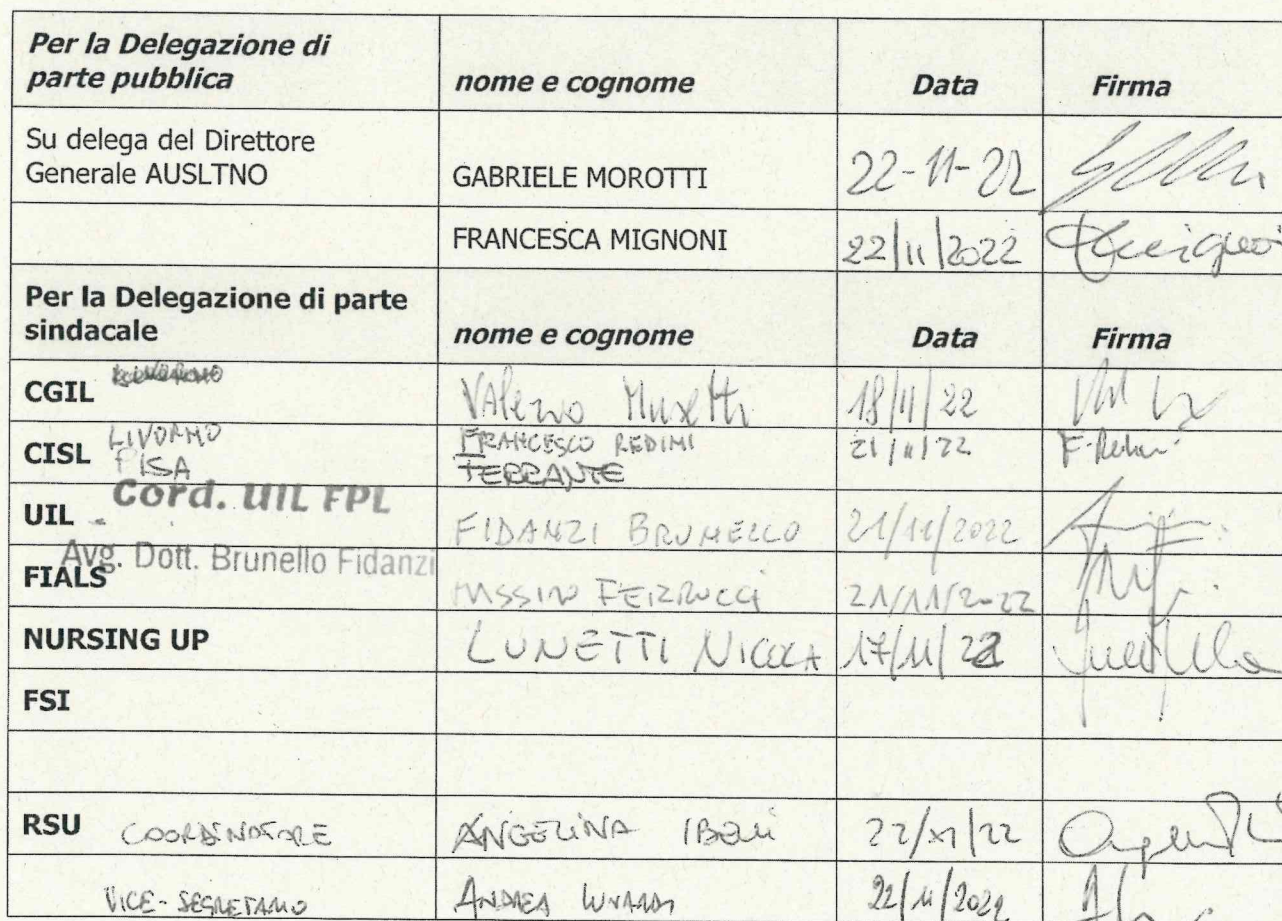 Per la Delegazione di parte pubblica nome e cognome Data Firma
Su delega del Direttore Generale AUSLTNO GABRIELE MOROTTI 22-11-22
FRANCESCA MIGNONI 22/11/2022
Per la Delegazione di parte sindacale nome e cognome Data Firma
CGIL Valerio 18/11/22
CISL LIVORNO FRANCESCO REDINI 21/11/22 F. Redini
PISA FERRANTE
Cord. UIL FPL
UIL FIDANZI BRUNELLO 21/11/2022
Avg. Dott. Brunello Fidanzi
FIALS MASSIMO FERRUCCI 21/11/2022
NURSING UP LUNETTI NICOLA 17/11/22
FSI
RSU COORDINATORE ANGELINA 22/XI/22
VICE-SEGRETARIO ANDREA LUNARDI 22/11/2022